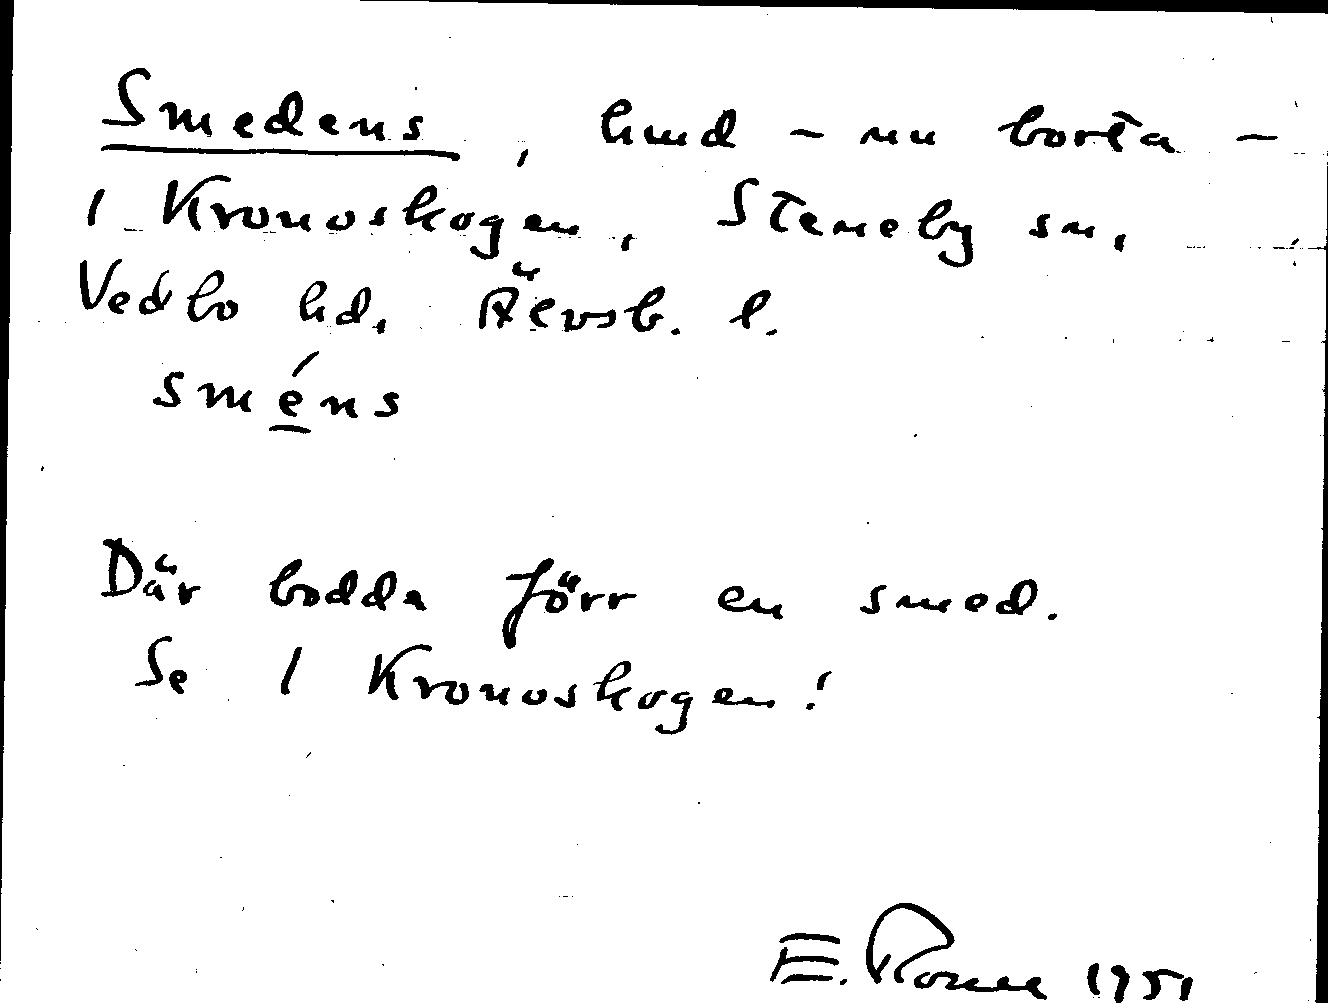 Smedens, hmd - nu borta -
1 Kronoskogen, Steneby sn,
Vedbo hd, Älvsb. l.
sméns
Där bodde förr en smed.
Se 1 Kronoskogen!
E. 1951